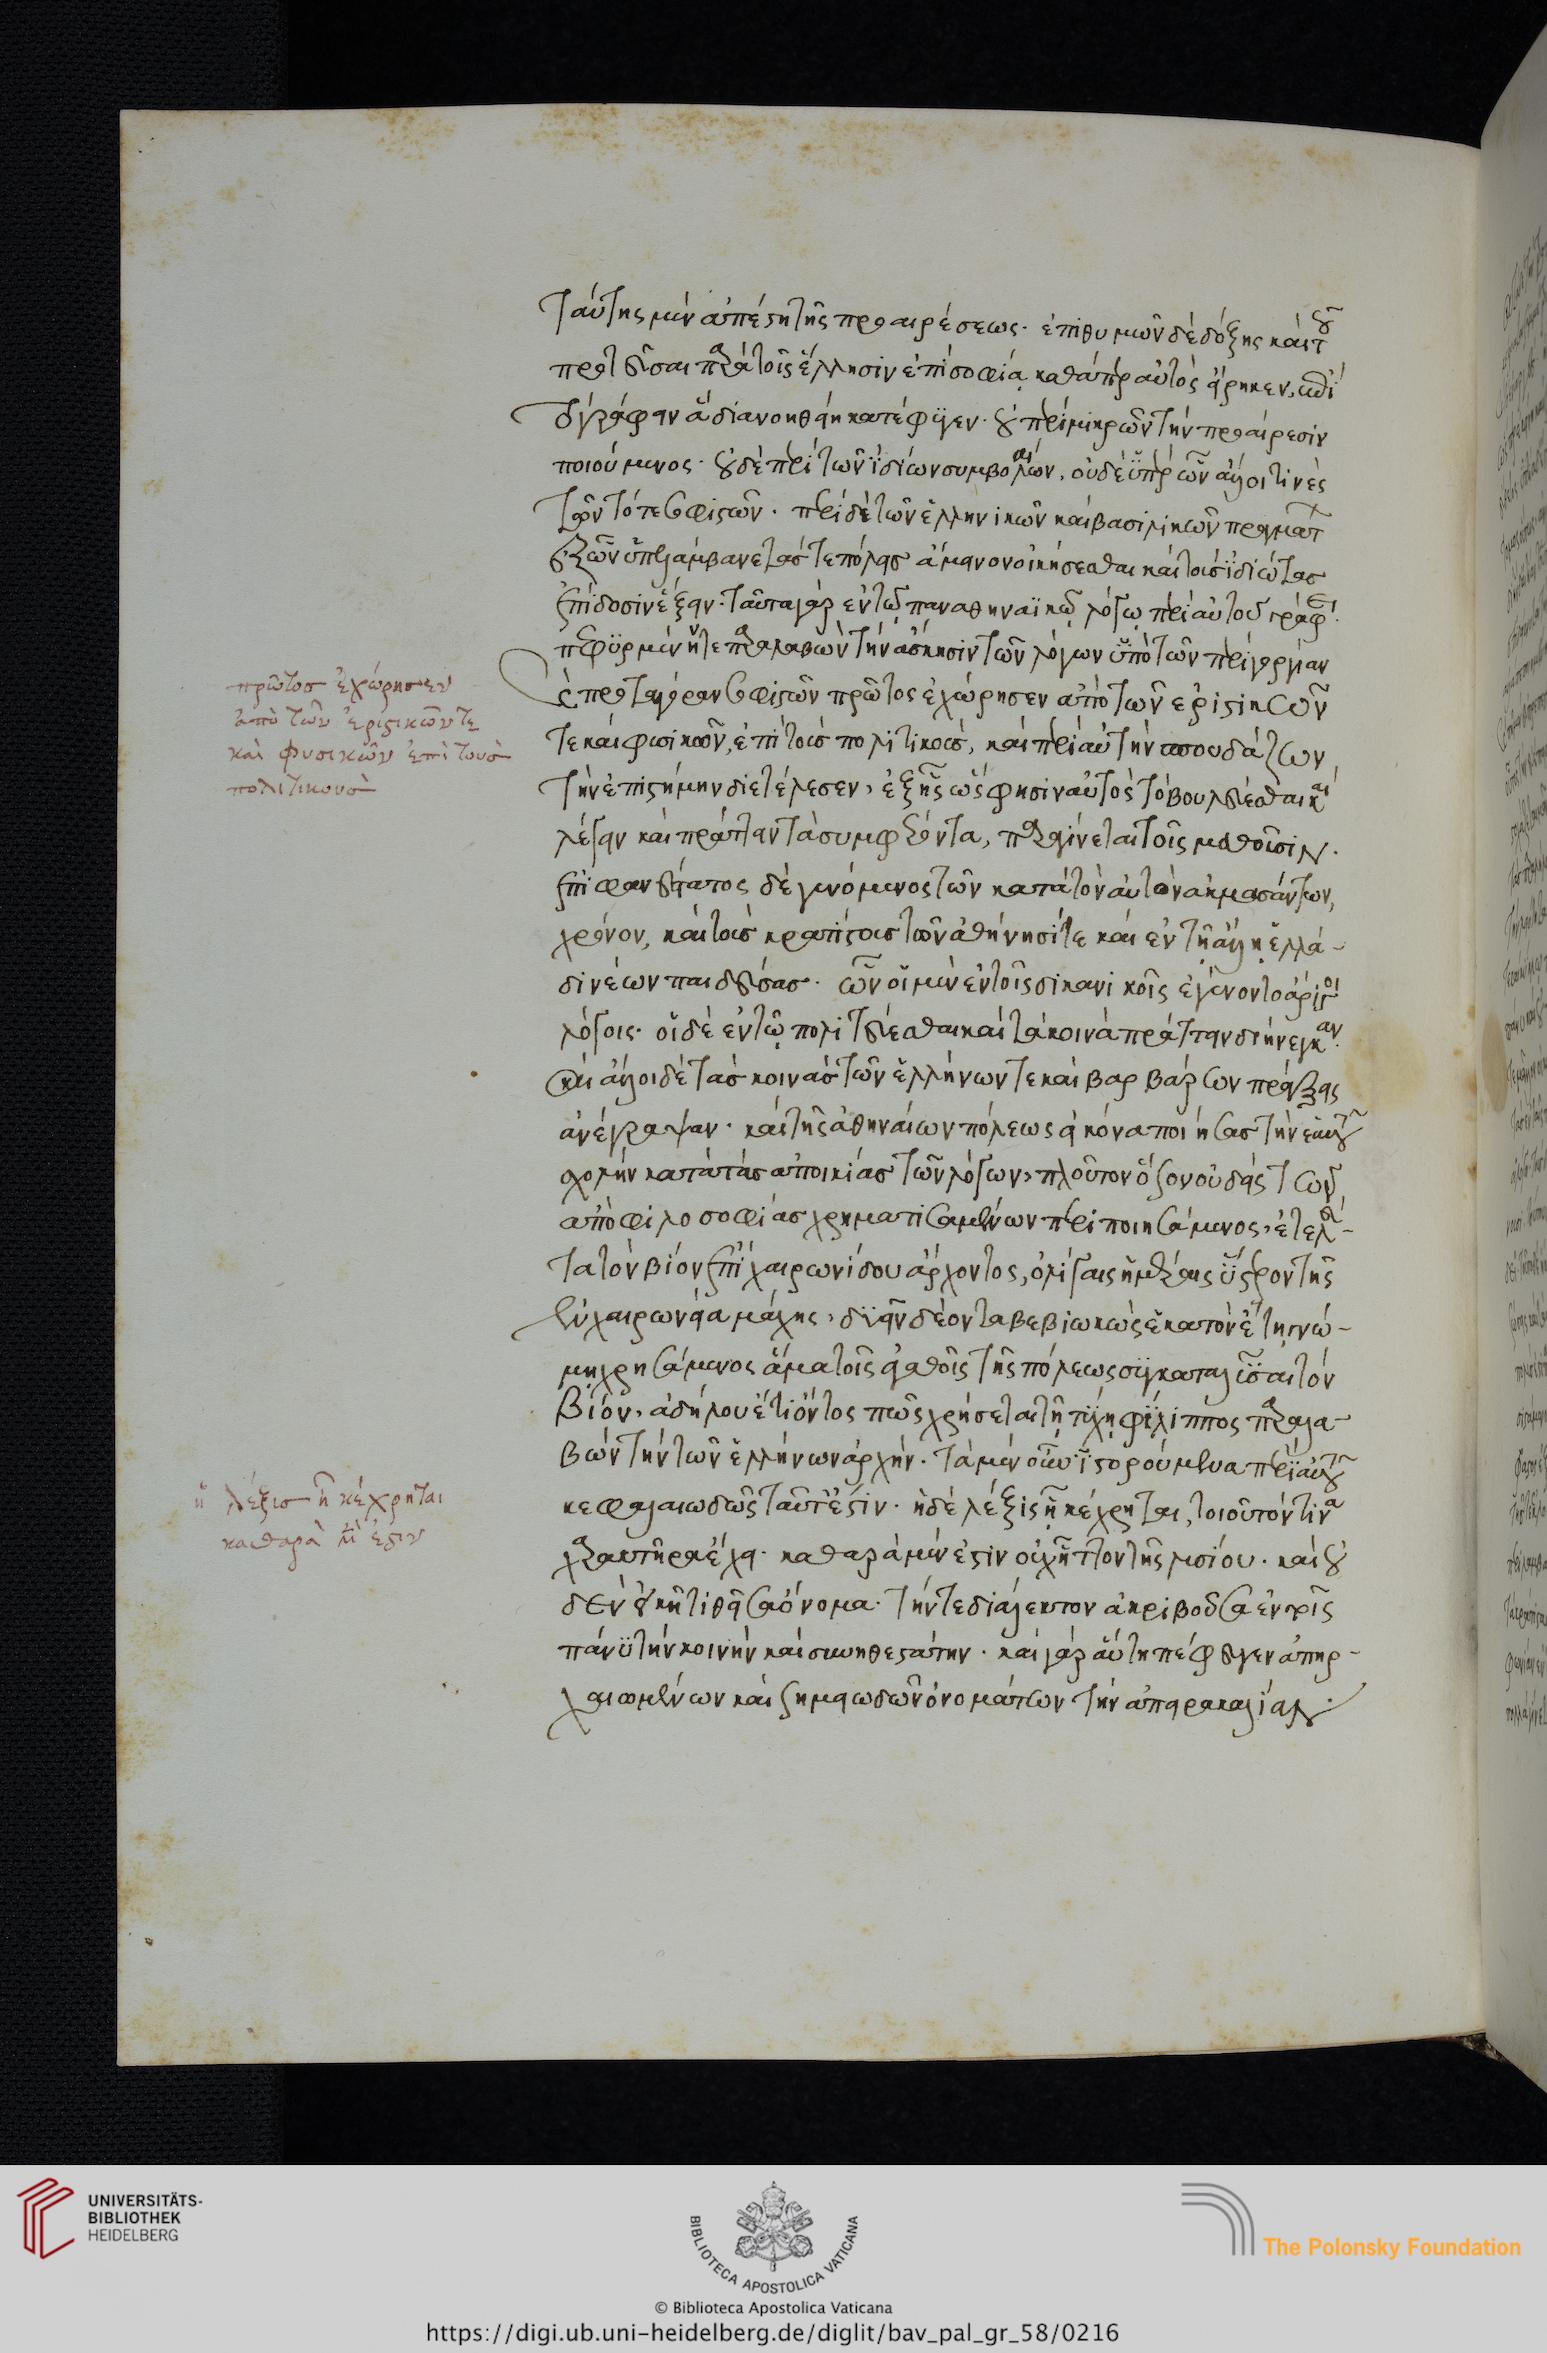 ταύτης μὲν ἀπέστη τῆς προαιρέσεως· ἐπιθυμῶν δὲ δόξης καὶ τοῦ
πρωτεῦσαι παρὰ τοῖς ἕλλησιν ἐπὶ σοφίᾳ καθάπερ αὐτὸς εἴρηκεν, ἐπὶ
τὸ γράφειν ἃ διανοηθείη κατέφυγεν· οὐ περὶ μικρῶν τὴν προαίρεσιν
ποιούμενος· οὐδὲ περὶ τῶν ἰδίων συμβολαίων, οὐδὲ ὑπὲρ ὧν ἄλλοι τινὲς
τῶν τότε σοφιστῶν· περὶ δὲ τῶν ἑλληνικῶν καὶ βασιλικῶν πραγμάτων
ἐξ ὧν ὑπελάμβανε τάς τε πόλεις ἄμεινον οἰκήσεσθαι καὶ τοὺς ἰδιώτας
ἐπίδοσιν ἕξειν· ταῦτα γὰρ ἐν τῷ παναθηναϊκῷ λόγῳ περὶ αὐτοῦ γράφει·
πεφυρμένην τε παραλαβὼν τὴν ἄσκησιν τῶν λόγων ὑπὸ τῶν περὶ γοργίαν
καὶ πρωταγόραν σοφιστῶν πρῶτος ἐχώρησεν ἀπὸ τῶν ἐριστικῶν
τε καὶ φυσικῶν, ἐπὶ τοὺς πολιτικοὺς, καὶ περὶ αὐτὴν σπουδάζων
τὴν ἐπιστήμην διετέλεσεν, ἐξ ἧς ὥς φησιν αὐτὸς τὸ βουλεύεσθαι καὶ
λέγειν καὶ πράττειν τὰ συμφέροντα, παραγίνεται τοῖς μαθοῦσιν·
ἐπιφανέστατος δὲ γενόμενος τῶν κατὰ τὸν αὐτὸν ἀκμασάντων
χρόνον, καὶ τοὺς κρατίστους τῶν ἀθήνησί τε καὶ ἐν τῇ ἄλλῃ ἑλλά-
δι νέων παιδεύσας· ὧν οἱ μὲν ἐν τοῖς δικανικοῖς ἐγένοντο ἄριστοι
λόγοις· οἱ δὲ ἐν τῷ πολιτεύεσθαι καὶ τὰ κοινὰ πράττειν διήνεγκαν·
καὶ ἄλλοι δὲ τὰς κοινὰς τῶν ἑλλήνων τε καὶ βαρβάρων πράξεις
ἀνέγραψαν· καὶ τῆς ἀθηναίων πόλεως εἰκόνα ποιήσας τὴν ἑαυτοῦ
σχολὴν κατὰ τὰς ἀποικίας τῶν λόγων, πλοῦτον ὅσον οὐδεὶς τῶν
ἀπὸ φιλοσοφίας χρηματισαμένων περιποιησάμενος, ἐτελεύ-
τα τὸν βίον ἐπὶ χαιρωνίδου ἄρχοντος, ὀλίγαις ἡμέραις ὕστερον τῆς
ἐν χαιρωνείᾳ μάχης, δυεῖν δέοντα βεβιωκὼς ἑκατὸν ἔτη γνώ-
μῃ χρησάμενος ἅμα τοῖς ἀγαθοῖς τῆς πόλεως συγκαταλῦσαι τὸν
βίον, ἀδήλου ἔτι ὄντος πῶς χρήσεται τῇ τύχῃ φίλιππος παραλα-
βὼν τὴν τῶν ἑλλήνων ἀρχήν· τὰ μὲν οὖν ἱστορούμενα περὶ αὐτοῦ
κεφαλαιωδῶς ταῦτ' ἐστίν· ἡ δὲ λέξις ᾗ κέχρηται, τοιοῦτόν τινα
χαρακτῆρα ἔχει· καθαρὰ μέν ἐστιν οὐχ ἧττον τῆς λυσίου· καὶ οὐ
δὲν εἰκῆ τιθεῖσα ὄνομα· τήν τε διάλεκτον ἀκριβοῦσα ἐν τοῖς
πάνυ τὴν κοινὴν καὶ συνηθεστάτην· καὶ γὰρ αὕτη πέφευγεν ἀπηρ-
χαιωμένων καὶ σημειωδῶν ὀνομάτων τὴν ἀπειροκαλίαν·
πρῶτος ἐχώρησεν
ἀπὸ τῶν ἐριστικῶν τε
καὶ φυσικῶν ἐπὶ τοὺς
πολιτικοὺς
ἡ λέξις ᾗ κέχρηται
καθαρὰ μέν ἐστιν
UNIVERSITÄTS-
BIBLIOTHEK
HEIDELBERG
BIBLIOTECA APOSTOLICA VATICANA
The Polonsky Foundation
© Biblioteca Apostolica Vaticana
https://digi.ub.uni-heidelberg.de/diglit/bav_pal_gr_58/0216